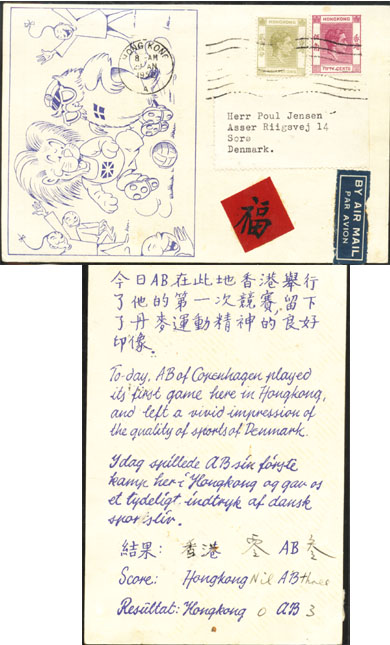 HONG KONG
8 - AM
A
HONGKONG
HONGKONG
Herr Poul Jensen
Asser Riigsvej 14
Sorø
Denmark.
BY AIR MAIL
PAR AVION
福
今日AB在此地香港舉行
了他的第一次競賽,留下
了丹麥運動精神的良好
印像。
To-day, AB of Copenhagen played
its first game here in Hongkong,
and left a vivid impression of
the quality of sports of Denmark.
Idag spillede AB sin første
kamp her i Hongkong og gav os
et tydeligt indtryk af dansk
sportsliv.
結果: 香港 零 AB 叁
Score: Hongkong Nil AB three
Resultat: Hongkong 0 AB 3